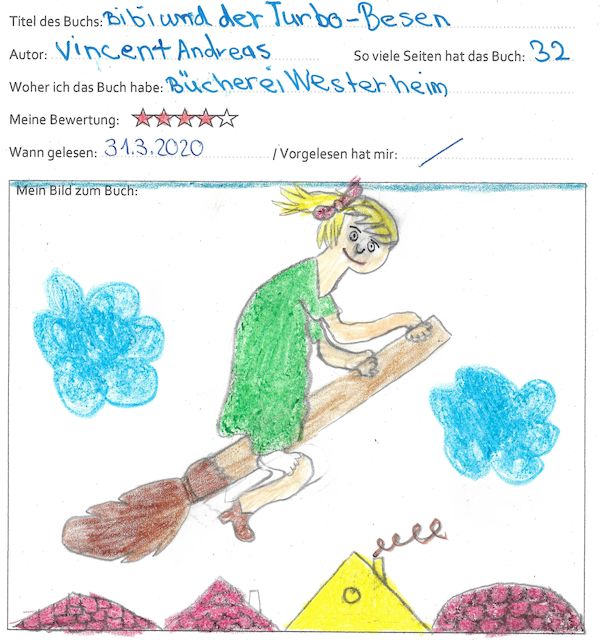 Titel des Buchs: Bibi und der Turbo-Besen
Autor: Vincent Andreas So viele Seiten hat das Buch: 32
Woher ich das Buch habe: Bücherei Westerheim
Meine Bewertung:
Wann gelesen: 31.3.2020 / Vorgelesen hat mir: /
Mein Bild zum Buch: